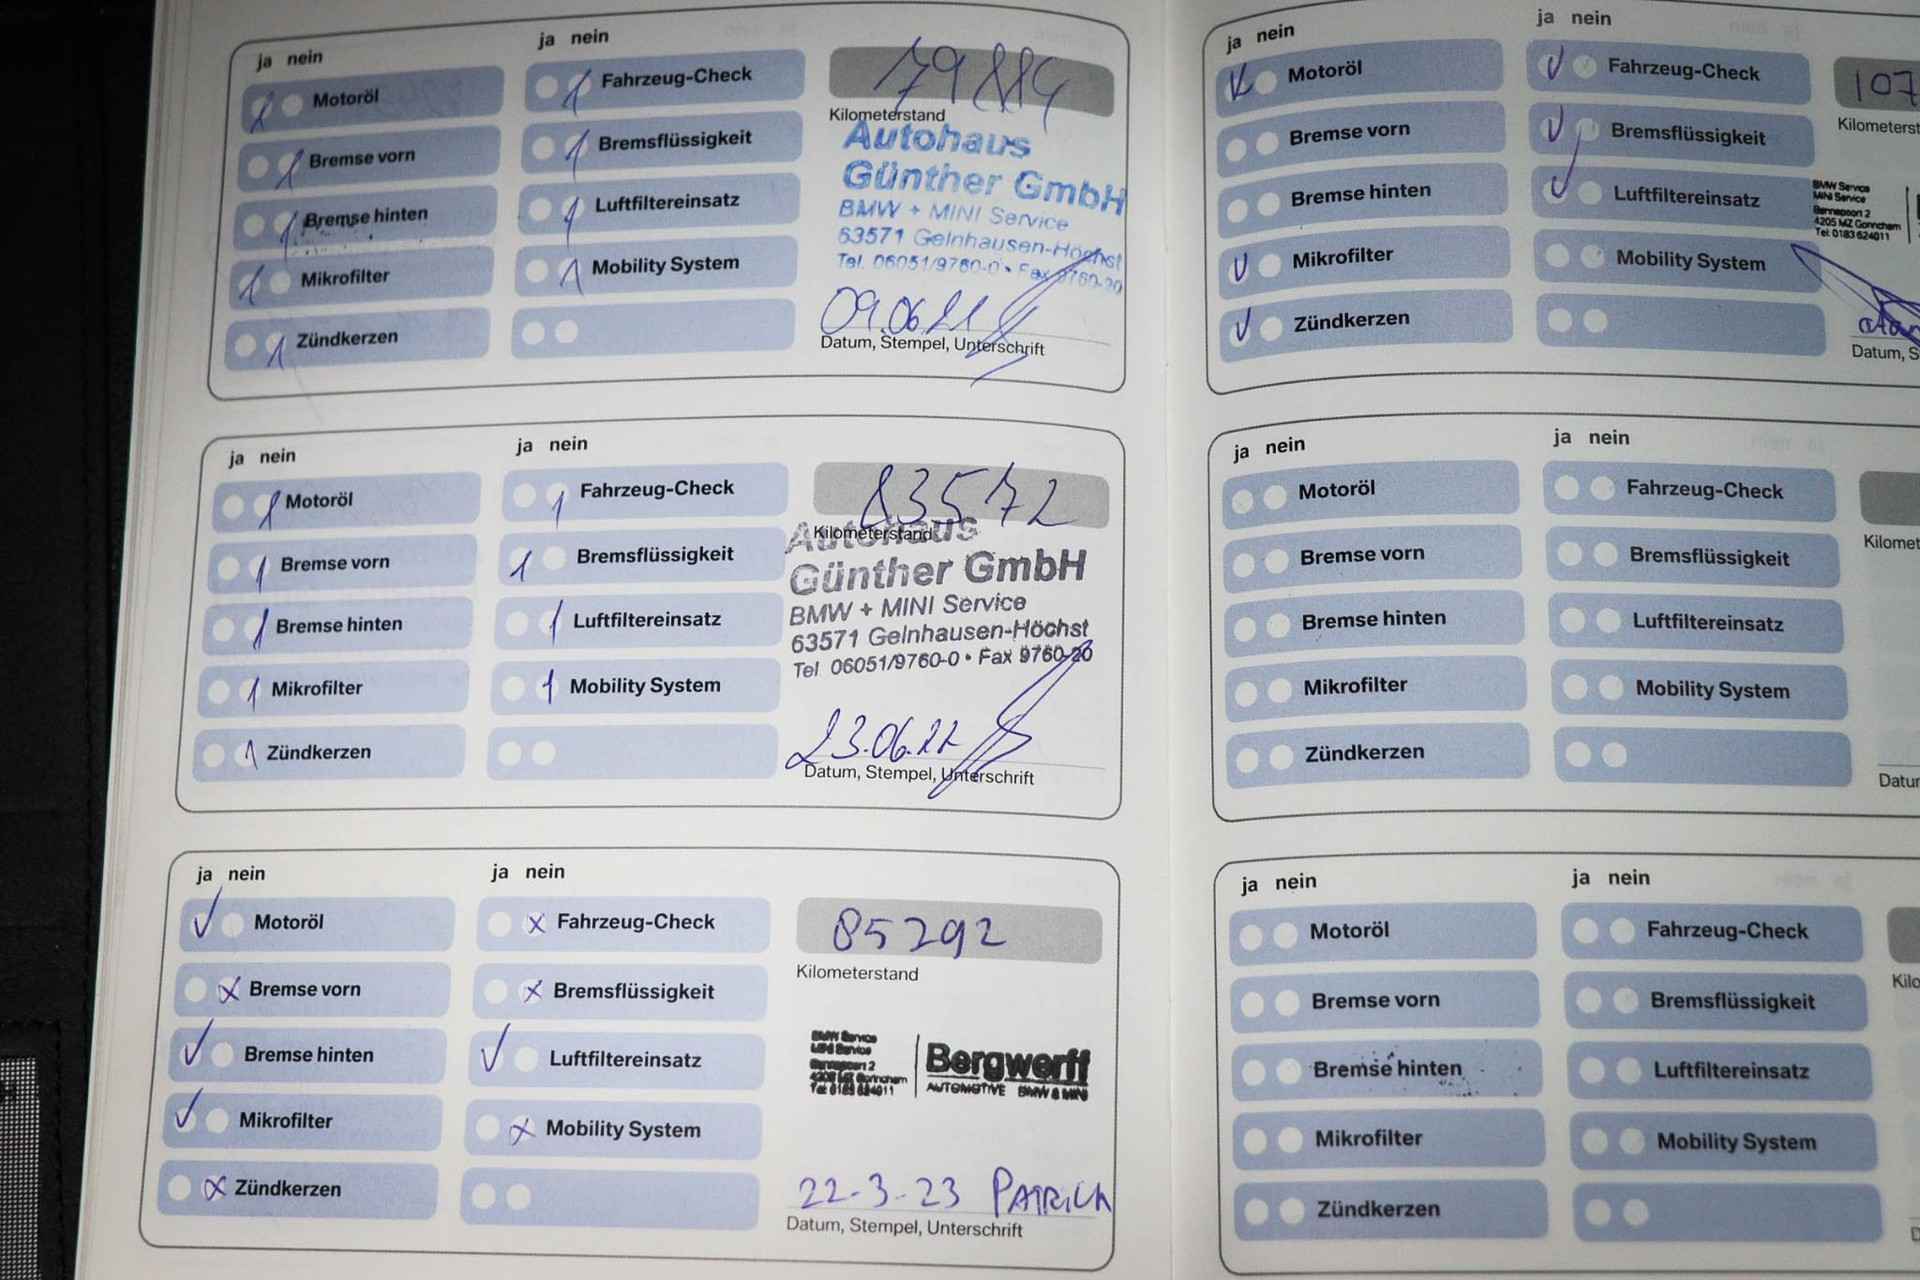 ja nein
Motoröl
Bremse vorn
Bremse hinten
Mikrofilter
Zündkerzen
ja nein
Fahrzeug-Check
Bremsflüssigkeit
Luftfiltereinsatz
Mobility System
79884
Kilometerstand
Autohaus
Günther GmbH
BMW + MINI Service
63571 Gelnhausen-Höchst
Tel. 06051/9760-0 • Fax 9760-20
09.06.21
Datum, Stempel, Unterschrift
ja nein
Motoröl
Bremse vorn
Bremse hinten
Mikrofilter
Zündkerzen
ja nein
Fahrzeug-Check
Bremsflüssigkeit
Luftfiltereinsatz
Mobility System
83572
Kilometerstand
Autohaus
Günther GmbH
BMW + MINI Service
63571 Gelnhausen-Höchst
Tel 06051/9760-0 • Fax 9760-20
23.06.22
Datum, Stempel, Unterschrift
ja nein
Motoröl
Bremse vorn
Bremse hinten
Mikrofilter
Zündkerzen
ja nein
Fahrzeug-Check
Bremsflüssigkeit
Luftfiltereinsatz
Mobility System
85292
Kilometerstand
BMW Service
MINI Service
4205 MZ Gorinchem
Tel: 0183 624011
Bergwerff
AUTOMOTIVE BMW & MINI
22-3-23 PATRICK
Datum, Stempel, Unterschrift
ja nein
Motoröl
Bremse vorn
Bremse hinten
Mikrofilter
Zündkerzen
ja nein
Fahrzeug-Check
Bremsflüssigkeit
Luftfiltereinsatz
Mobility System
107
Kilometerst
BMW Service
MINI Service
4205 MZ Gorinchem
Tel: 0183 624011
Datum, S
ja nein
Motoröl
Bremse vorn
Bremse hinten
Mikrofilter
Zündkerzen
ja nein
Fahrzeug-Check
Bremsflüssigkeit
Luftfiltereinsatz
Mobility System
Kilomet
Datur
ja nein
Motoröl
Bremse vorn
Bremse hinten
Mikrofilter
Zündkerzen
ja nein
Fahrzeug-Check
Bremsflüssigkeit
Luftfiltereinsatz
Mobility System
Kilo
D